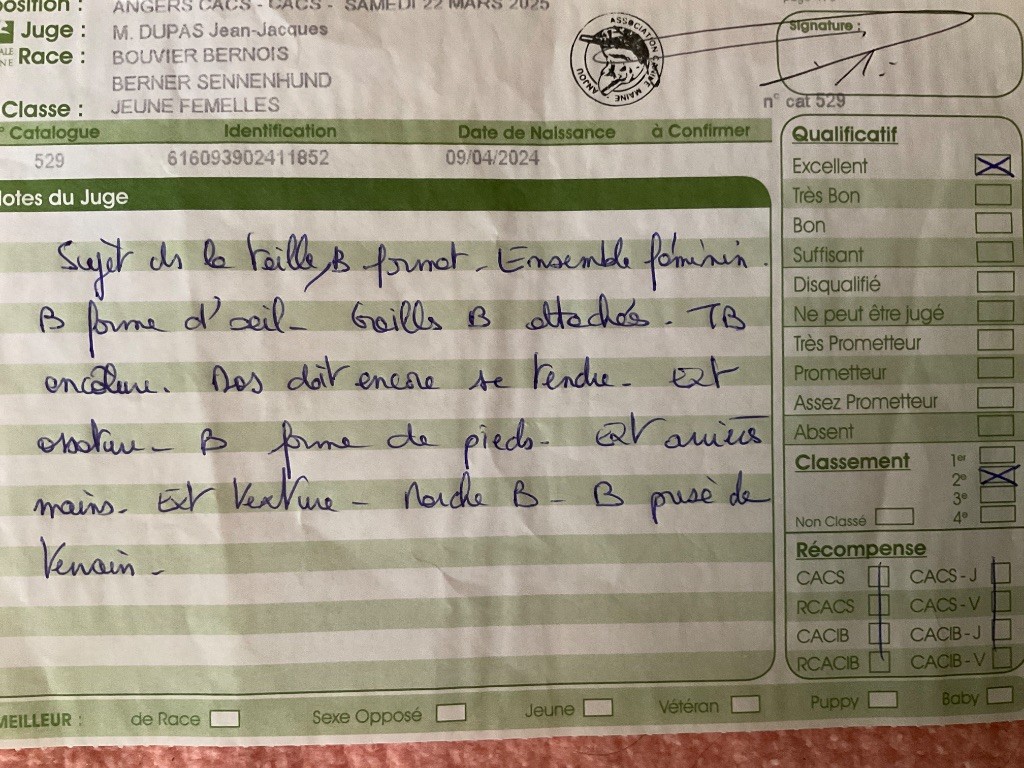 position : ANGERS CACS - CACS - SAMEDI 22 MARS 2025
Juge : M. DUPAS Jean-Jacques
Race : BOUVIER BERNOIS
BERNER SENNENHUND
Classe : JEUNE FEMELLES
ASSOCIATION CANINE MAINE - ANJOU
Signature :
n° cat 529
° Catalogue Identification Date de Naissance à Confirmer
529 616093902411852 09/04/2024
Notes du Juge
Sujet ds la taille, B format - Ensemble féminin.
B forme d'oeil - Oreilles B attachées. TB
encolure. Dos doit encore se tendre - EXT
ossature - B forme de pieds - EXT arrières
mains. EXT texture - Marche B - B prise de
terrain -
Qualificatif
Excellent
Très Bon
Bon
Suffisant
Disqualifié
Ne peut être jugé
Très Prometteur
Prometteur
Assez Prometteur
Absent
Classement 1er
2e
3e
Non Classé 4e
Récompense
CACS CACS - J
RCACS CACS - V
CACIB CACIB - J
RCACIB CACIB - V
MEILLEUR : de Race Sexe Opposé Jeune Vétéran Puppy Baby